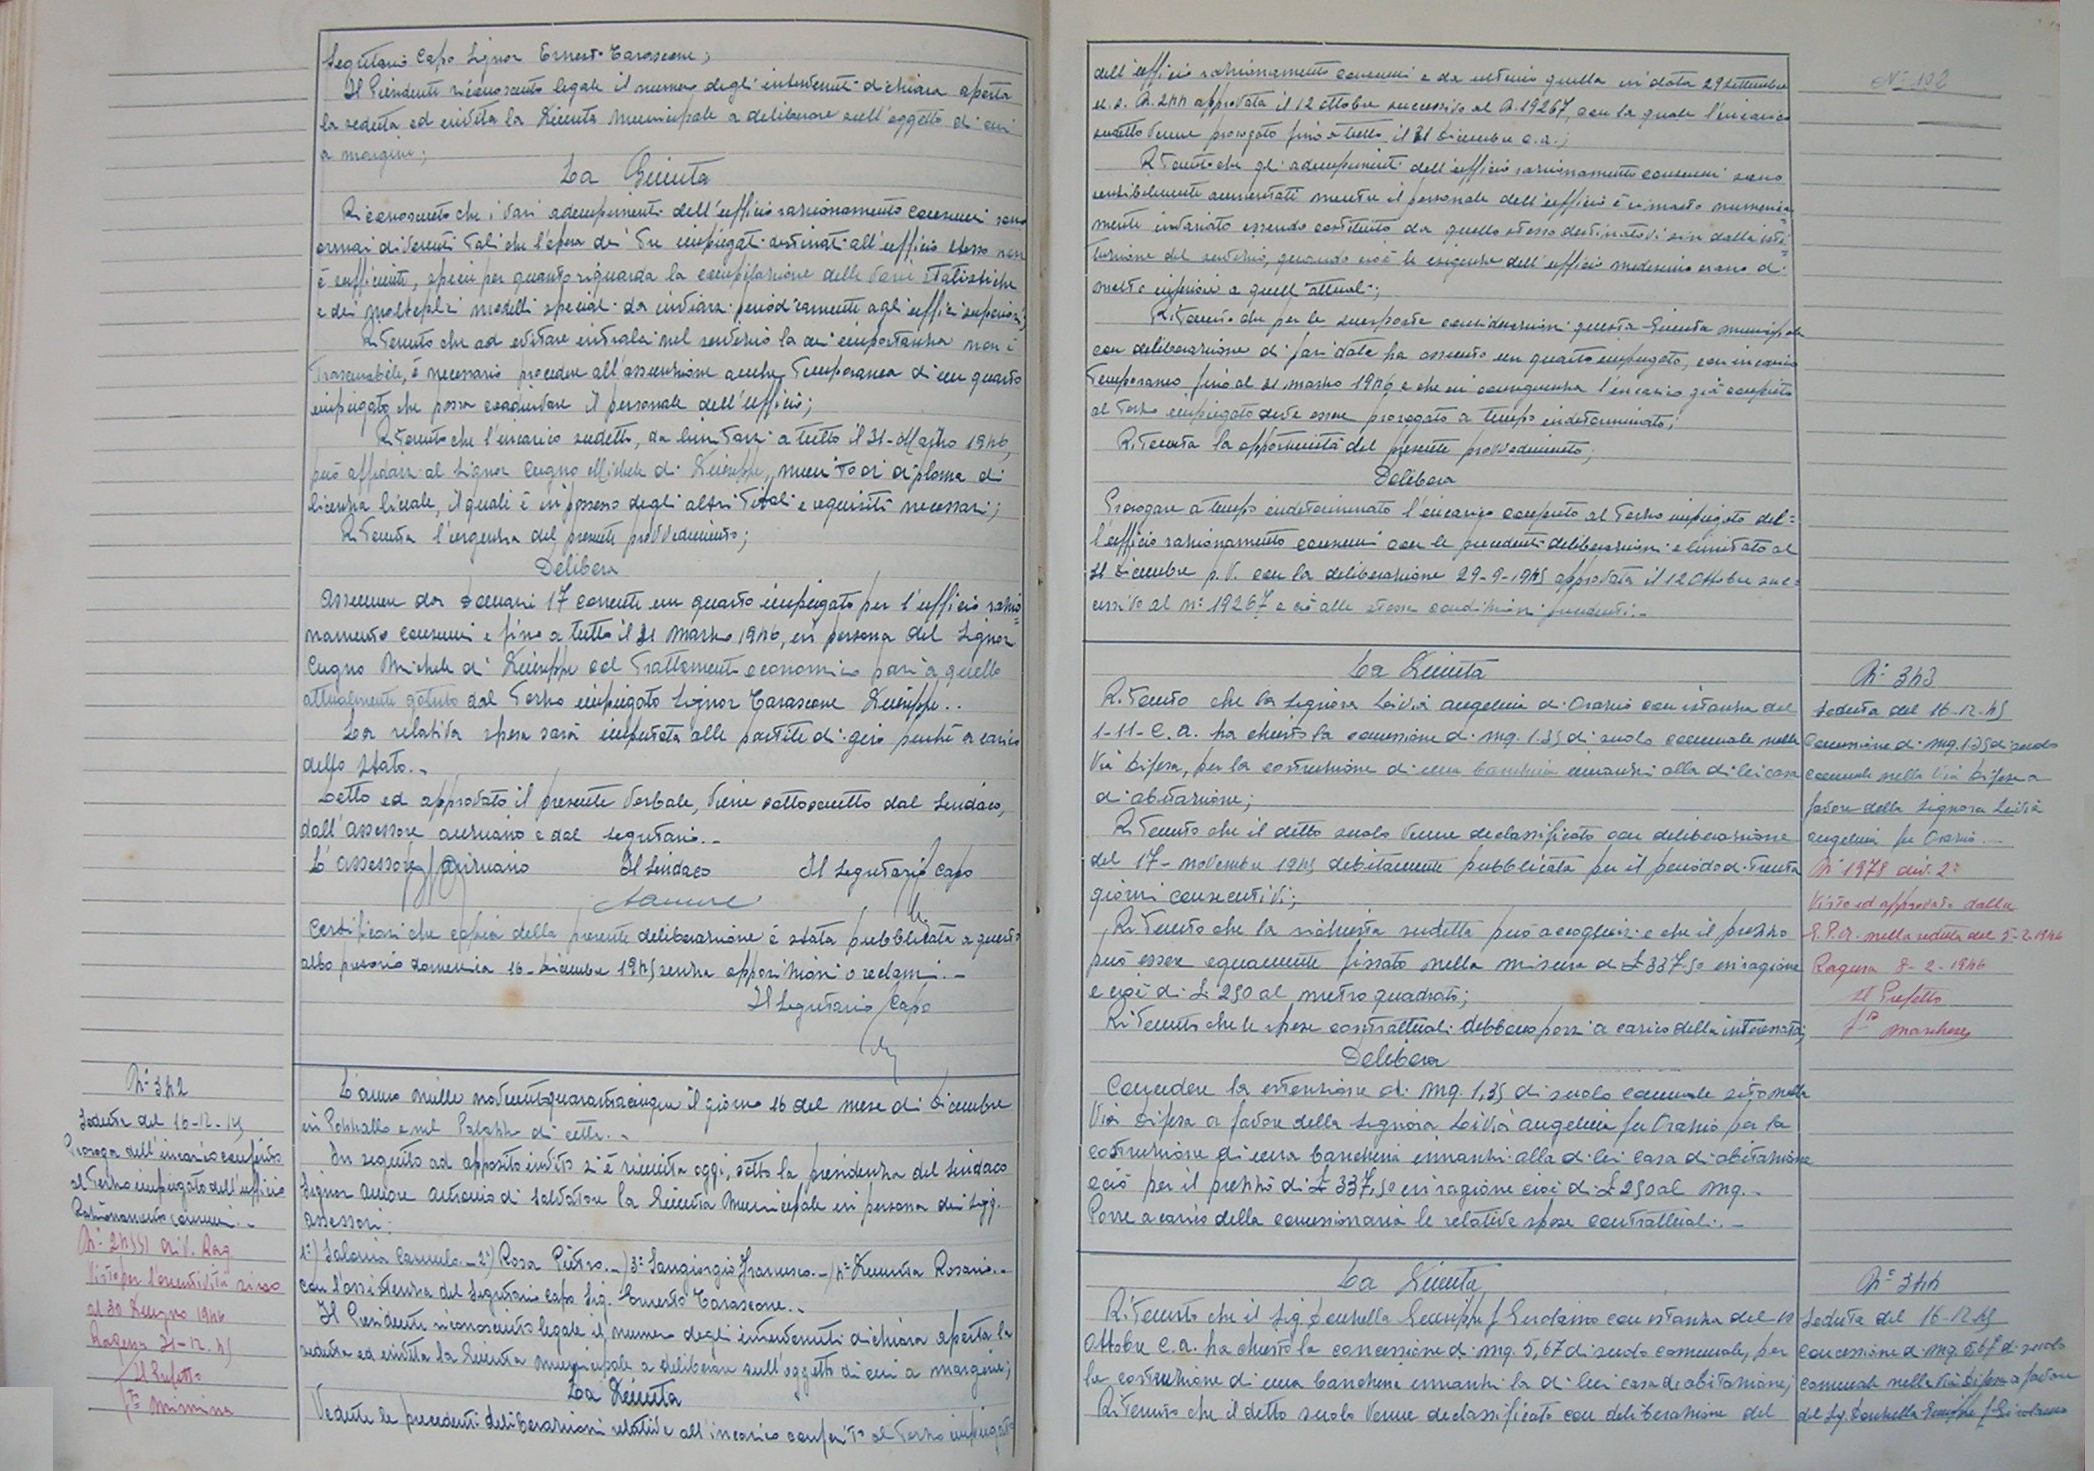 Segretario Capo Signor Ernesto Carascone;
Il Presidente riconosciuto legale il numero degli intervenuti dichiara aperta
la seduta ed invita la Giunta Municipale a deliberare sull'oggetto di cui
a margine;
La Giunta
Riconosciuto che i vari adempimenti dell'ufficio razionamento consumi sono
ormai divenuti tali che l'opera dei tre impiegati destinati all'ufficio stesso non
è sufficiente, specie per quanto riguarda la compilazione delle varie statistiche
e dei molteplici modelli speciali da inviarsi periodicamente agli uffici superiori;
Ritenuto che ad evitare intralci nel servizio la cui importanza non è
trascurabile, è necessario procedere all'assunzione anche temporanea di un quarto
impiegato che possa coadiuvare il personale dell'ufficio;
Ritenuto che l'incarico sudetto, da limitarsi a tutto il 31-Marzo 1946,
può affidarsi al Signor Cugno Michele di Giuseppe, munito di diploma di
licenza liceale, il quale è in possesso degli altri titoli e requisiti necessari;
Ritenuta l'urgenza del presente provvedimento;
Delibera
Assumere da domani 17 corrente un quarto impiegato per l'ufficio razio=
namento consumi e fino a tutto il 31 Marzo 1946, in persona del Signor
Cugno Michele di Giuseppe col trattamento economico pari a quello
attualmente goduto dal terzo impiegato Signor Carascone Giuseppe..
La relativa spesa sarà imputata alle partite di giro perchè a carico
dello Stato.-
Letto ed approvato il presente verbale, viene sottoscritto dal Sindaco,
dall'assessore anziano e dal segretario.-
L'assessore anziano Il Sindaco Il Segretario Capo
Certificasi che copia della presente deliberazione è stata pubblicata a questo
albo pretorio domenica 16-Dicembre 1945 senza opposizioni o reclami.-
Il Segretario Capo
N° 342
Seduta del 16-12-45
Proroga dell'incarico conferito
al terzo impiegato dell'ufficio
Razionamento consumi.-
N° 24551 Div. Rag
Visto per l'esecutività sino
al 30 Giugno 1946
Ragusa 31-12-45
Il Prefetto
L'anno mille novecentoquarantacinque il giorno 16 del mese di Dicembre
in Pozzallo e nel Palazzo di città.-
In seguito ad apposito invito si è riunita oggi, sotto la presidenza del Sindaco
Signor Amore Antonio di Salvatore la Giunta Municipale in persona dei Sigg.
assessori:
1°) Salonia Carmelo.-2°) Rosa Pietro.-)3° Sangiorgio Francesco.-)4° Giunta Rosario.-
con l'assistenza del Segretario Capo Sig. Ernesto Carascone.-
Il Presidente riconosciuto legale il numero degli intervenuti dichiara aperta la
seduta ed invita la Giunta Municipale a deliberare sull'oggetto di cui a margine;
La Giunta
Vedute le precedenti deliberazioni relative all'incarico conferito al terzo impiegato
N° 192
dell'ufficio razionamento consumi e da ultimo quella in data 29 settembre
u.s. N. 244 approvata il 12 ottobre successivo al N. 19267, con la quale l'incarico
sudetto venne prorogato fino a tutto il 31 Dicembre c.a.;
Ritenuto che gli adempimenti dell'ufficio razionamento consumi sono
sensibilmente aumentati mentre il personale dell'ufficio è rimasto numerica=
mente invariato essendo costituito da quello stesso destinatovi sin dalla isti=
tuzione del servizio, quando cioè le esigenze dell'ufficio medesimo erano di
molto inferiori a quelle attuali;
Ritenuto che per le suesposte considerazioni questa Giunta municipale
con deliberazione di pari data ha assunto un quarto impiegato, con incarico
temporaneo fino al 31 marzo 1946 e che in conseguenza l'incarico già conferito
al terzo impiegato deve essere prorogato a tempo indeterminato;
Ritenuta la opportunità del presente provvedimento;
Delibera
Prorogare a tempo indeterminato l'incarico conferito al terzo impiegato del=
l'ufficio razionamento consumi con le precedenti deliberazioni e limitato al
31 Dicembre p.v. con la deliberazione 29-9-1945 approvata il 12 Ottobre suc=
cessivo al n° 19267 e ciò alle stesse condizioni precedenti.-
La Giunta
Ritenuto che la Signora Scivà Angelina di Orazio con istanza del
1-11-c.a. ha chiesto la concessione di mq. 1.35 di suolo comunale nella
Via Difesa, per la costruzione di una banchina innanzi alla di lei casa
di abitazione;
Ritenuto che il detto suolo venne declassificato con deliberazione
del 17-novembre 1945 debitamente pubblicata per il periodo di trenta
giorni consecutivi;
Ritenuto che la richiesta sudetta può accogliersi e che il prezzo
può essere equamente fissato nella misura di £ 337.50 in ragione
e cioè di £ 250 al metro quadrato;
Ritenuto che le spese contrattuali debbano porsi a carico della interessata;
Delibera
Concedere la estensione di mq. 1,35 di suolo comunale sito nella
Via Difesa a favore della Signora Scivà Angelina fu Orazio per la
costruzione di una banchina innanzi alla di lei casa di abitazione
e ciò per il prezzo di £ 337,50 in ragione cioè di £ 250 al mq.-
Porre a carico della concessionaria le relative spese contrattuali.-
N° 343
Seduta del 16-12-45
Concessione di mq. 1.35 di suolo
comunale nella Via Difesa a
favore della Signora Scivà
Angelina fu Orazio.-
N° 1978 div. 2ª
Visto ed approvato dalla
G.P.A. nella seduta del 5-2-1946
Ragusa 8-2-1946
Il Prefetto
La Giunta
Ritenuto che il Sig. Giuseppe f Girolamo con istanza del 10
Ottobre c.a. ha chiesto la concessione di mq. 5,67 di suolo comunale, per
la costruzione di una banchina innanzi la di lui casa di abitazione;
Ritenuto che il detto suolo venne declassificato con deliberazione del
N° 344
Seduta del 16-12-45
concessione di mq. 5,67 di suolo
comunale nella Via Difesa a favore
del Sig. Giuseppe f Girolamo